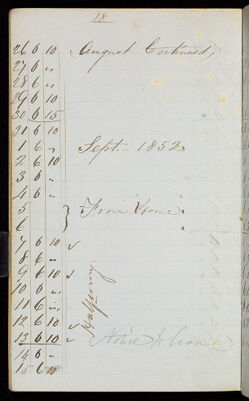 18
26 6 10 August Continued,
27 6 "
28 6 "
29 6 10
30 6 15
31 6 10
1 6 " Sept. 1852.
2 6 10
3 6 "
4 6 "
5 } From Home
6
7 6 10
8 6 "
9 6 10
10 6 "
11 6 "
12 6 10
13 6 10
14 6 "
15 6 10